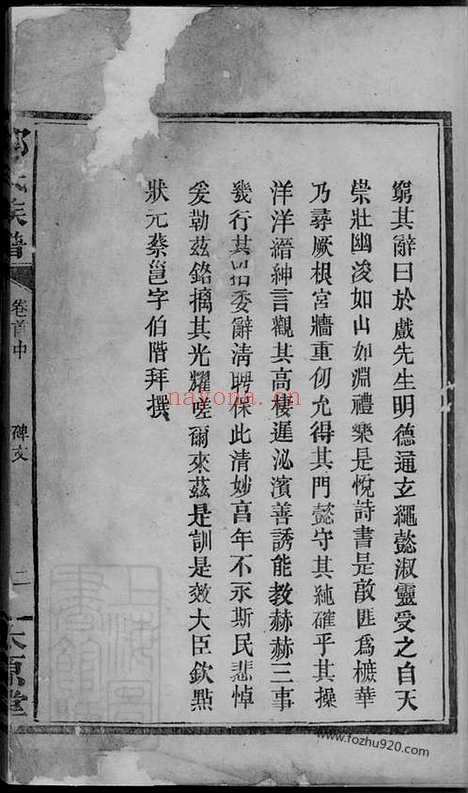 窮其辭曰於戲先生明德通玄純懿淑靈受之自天
崇壯幽浚如山如淵禮樂是悅詩書是敦匪爲摭華
乃尋厥根宮牆重仞允得其門懿守其純確乎其操
洋洋縉紳言觀其高棲遲泌濱善誘能教赫赫三事
幾行其招委辭清聘保此清妙亯年不永斯民悲悼
爰勒茲銘摛其光耀嗟爾來茲是訓是效大臣欽點
狀元蔡邕字伯階拜撰
族譜
卷首中
碑文
二
太原堂
nayona.cn
www.fozhu920.com